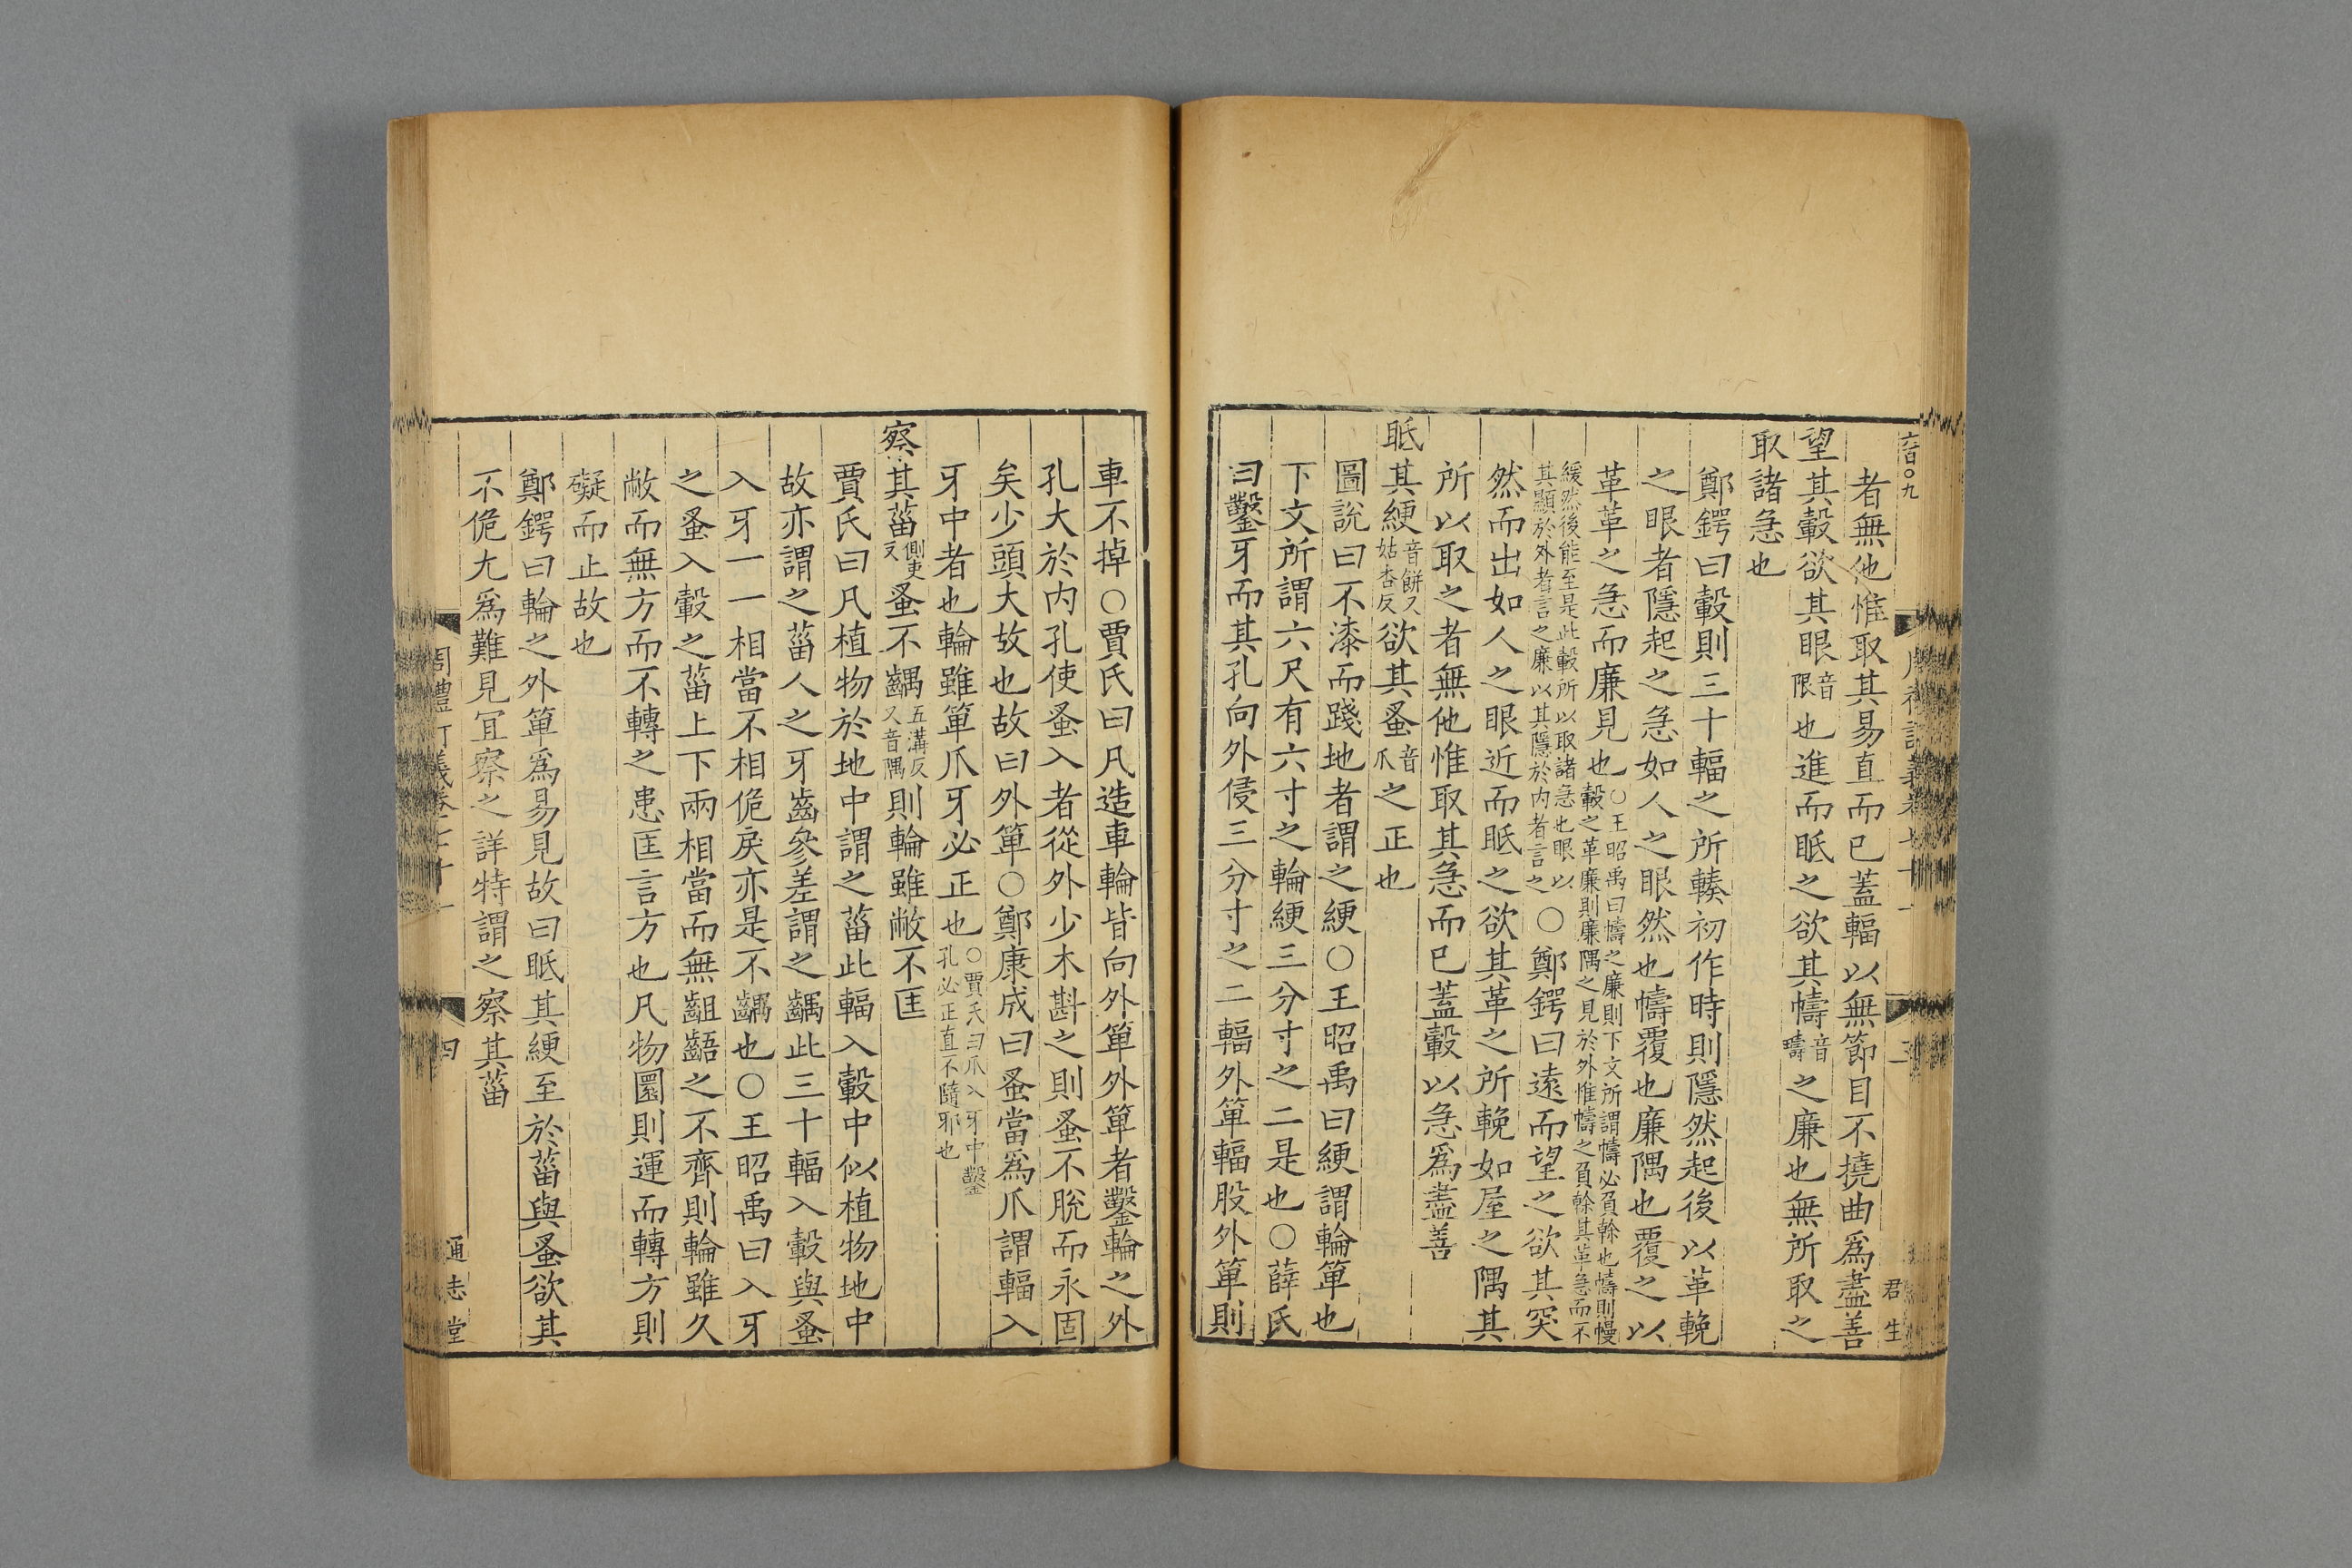 者無他惟取其易直而已蓋輻以無節目不撓曲爲盡善
望其轂欲其眼音限也進而眂之欲其幬音疇之廉也無所取之
取諸急也
鄭鍔曰轂則三十輻之所輳初作時則隱然起後以革輓
之眼者隱起之急如人之眼然也幬覆也廉隅也覆之以
革革之急而廉見也○王昭禹曰幬之廉則下文所謂幬必負榦也幬則幔轂之革廉則廉隅之見於外惟幬之負榦其革急而不
緩然後能至是此轂所以取諸急也眼以其顯於外者言之廉以其隱於內者言之○鄭鍔曰遠而望之欲其突
然而出如人之眼近而眂之欲其革之所輓如屋之隅其
所以取之者無他惟取其急而已蓋轂以急爲盡善
眂其綆音餅又姑杏反欲其蚤音爪之正也
圖說曰不漆而踐地者謂之綆○王昭禹曰綆謂輪箄也
下文所謂六尺有六寸之輪綆三分寸之二是也○薛氏
曰鑿牙而其孔向外侵三分寸之二輻外箄輻股外箄則
車不掉○賈氏曰凡造車輪皆向外箄外箄者鑿輪之外
孔大於內孔使蚤入者從外少木斟之則蚤不脫而永固
矣少頭大故也故曰外箄○鄭康成曰蚤當爲爪謂輻入
牙中者也輪雖箄爪牙必正也○賈氏曰爪入牙中鑿孔必正直不隨邪也
察其菑側吏反蚤不齵五溝反又音隅則輪雖敝不匡
賈氏曰凡植物於地中謂之菑此輻入轂中似植物地中
故亦謂之菑人之牙齒參差謂之齵此三十輻入轂與蚤
入牙一一相當不相佹戾亦是不齵也○王昭禹曰入牙
之蚤入轂之菑上下兩相當而無齟齬之不齊則輪雖久
敝而無方而不轉之患匡言方也凡物圜則運而轉方則
礙而止故也
鄭鍔曰輪之外箄爲易見故曰眂其綆至於菑與蚤欲其
不佹尢爲難見宜察之詳特謂之察其菑
周禮訂義卷七十一
四
通志堂